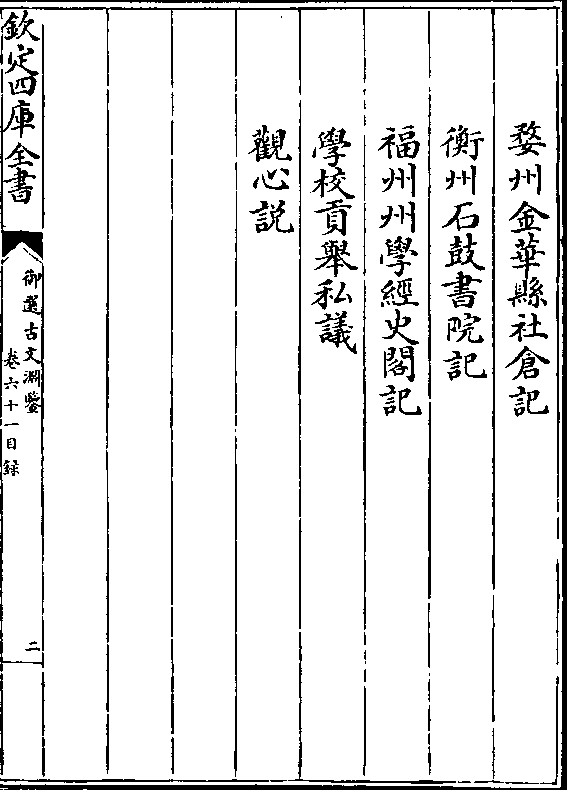 婺州金華縣社倉記
衡州石鼓書院記
福州州學經史閣記
學校貢舉私議
觀心説
欽定四庫全書
御選古文淵鑒
卷六十一目録
二